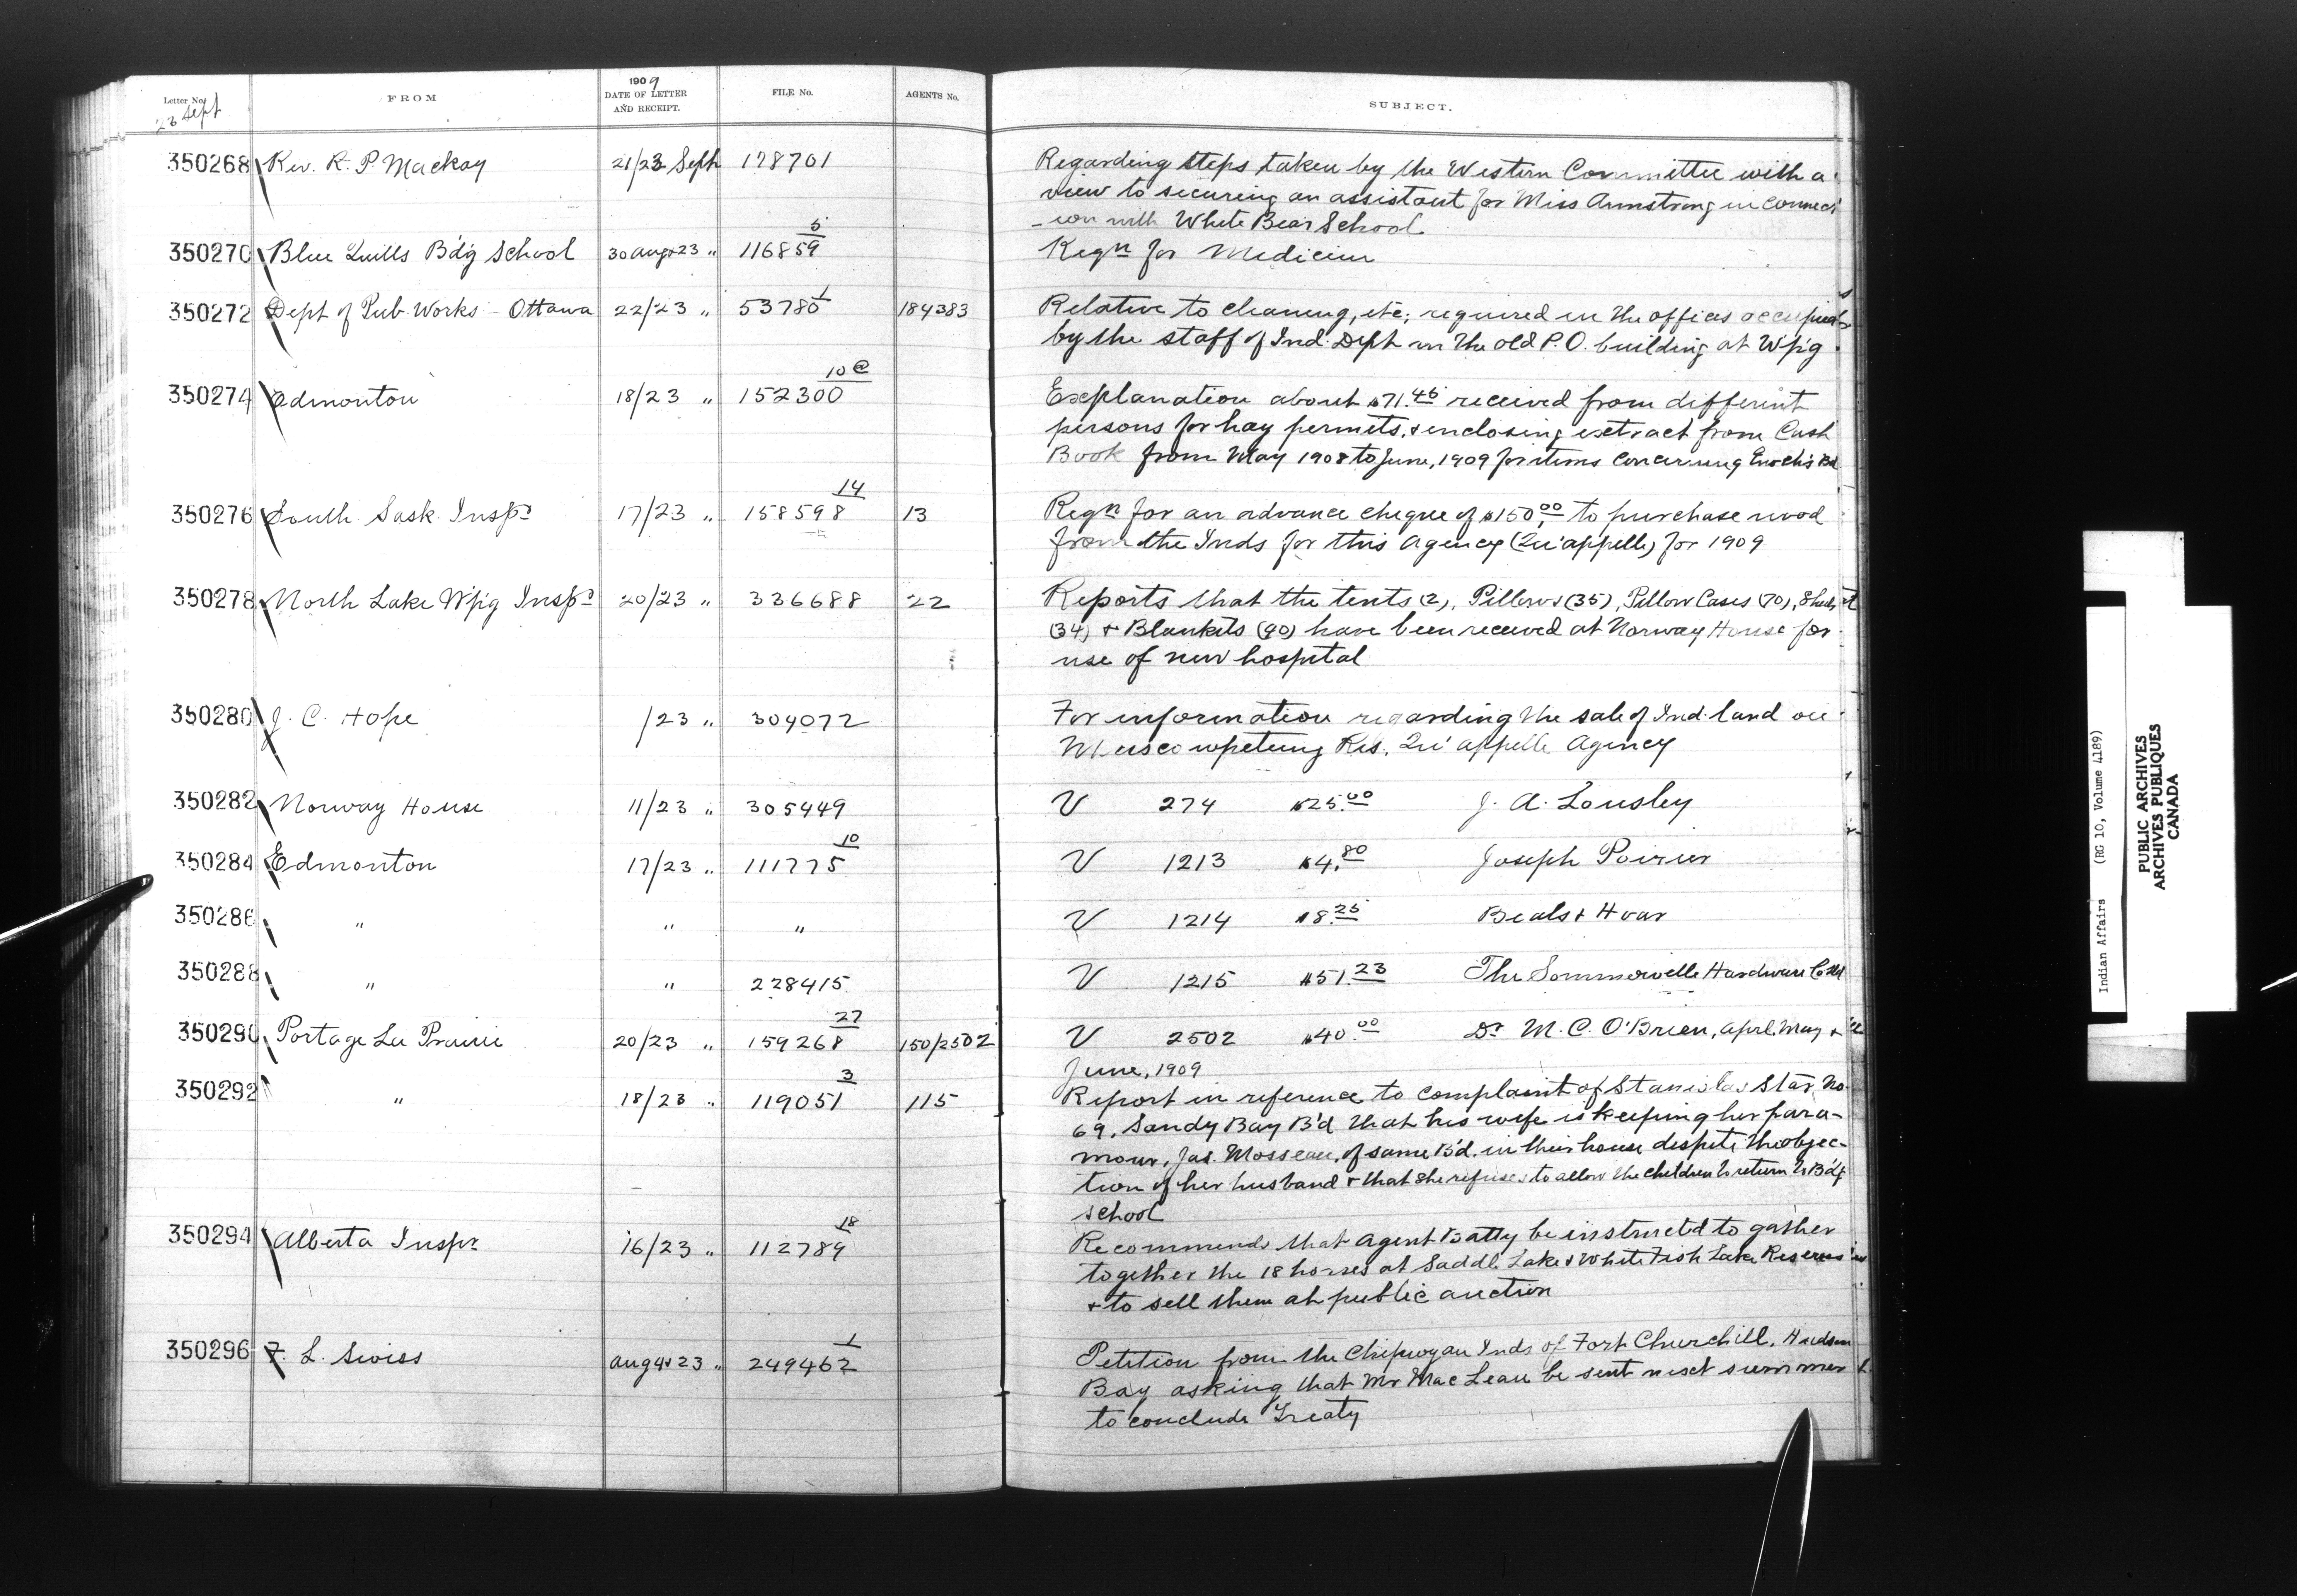 Letter No. FROM 1909 DATE OF LETTER AND RECEIPT. FILE No. AGENTS No. SUBJECT.
23 Sept
350268 Rev. R. P. Mackay 21/23 Sept 178701 Regarding steps taken by the Western Committee with a
view to securing an assistant for Miss Armstrong in connect
-ion with White Bear School.
350270 Blue Quills Bd'g School 30 Aug & 23 " 116859 5 Reqn for Medicine
350272 Dept of Pub. Works - Ottawa 22/23 " 53780 1 184383 Relative to cleaning, etc; required in the offices occupied
by the staff of Ind. Dept in the old P.O. building at W'p'g
350274 Edmonton 18/23 " 152300 10@ Explanation about $71.45 received from different
persons for hay permits, & enclosing extract from Cash
Book from May 1908 to June, 1909 for items concerning Enoch's Bd
350276 South Sask. Inspr 17/23 " 158598 14 13 Reqn for an advance cheque of $150.00 to purchase wood
from the Inds for this Agency (Qu'appelle) for 1909
350278 North Lake W'p'g Inspr 20/23 " 336688 22 Reports that the tents (2), Pillows (35), Pillow Cases (70), Sheets
(34) & Blankets (90) have been received at Norway House for
use of new hospital
350280 J. C. Hope /23 " 304072 For information regarding the sale of Ind. land on
Muscowpetung Res. Qu'appelle Agency
350282 Norway House 11/23 " 305449 V 274 $25.00 J. A. Lousley
350284 Edmonton 17/23 " 111775 10 V 1213 $4.80 Joseph Poirier
350286 " " " V 1214 $8.25 Beals & Hoar
350288 " " 228415 V 1215 $51.23 The Sommerville Hardware Co Ltd
350290 Portage La Prairie 20/23 " 159268 27 150/2502 V 2502 $40.00 Dr M. C. O'Brien, April, May &
June, 1909
350292 " 18/23 " 119051 3 115 Report in reference to complaint of Stanislas Star No.
69, Sandy Bay B'd that his wife is keeping her para-
mour, Jas. Mosseau, of same B'd. in their house despite the objec-
tion of her husband & that she refuses to allow the children to return to B'd'g
school
350294 Alberta Inspr 16/23 " 112789 18 Recommends that Agent Batty be instructed to gather
together the 18 horses at Saddle Lake & White Fish Lake Reserves
& to sell them at public auction
350296 F. L. Swiss Aug 4 & 23 " 249462 1 Petition from the Chipwyan Inds of Fort Churchill, Hudson
Bay asking that Mr MacLean be sent next summer
to conclude Treaty
Indian Affairs (RG 10, Volume 4189)
PUBLIC ARCHIVES
ARCHIVES PUBLIQUES
CANADA